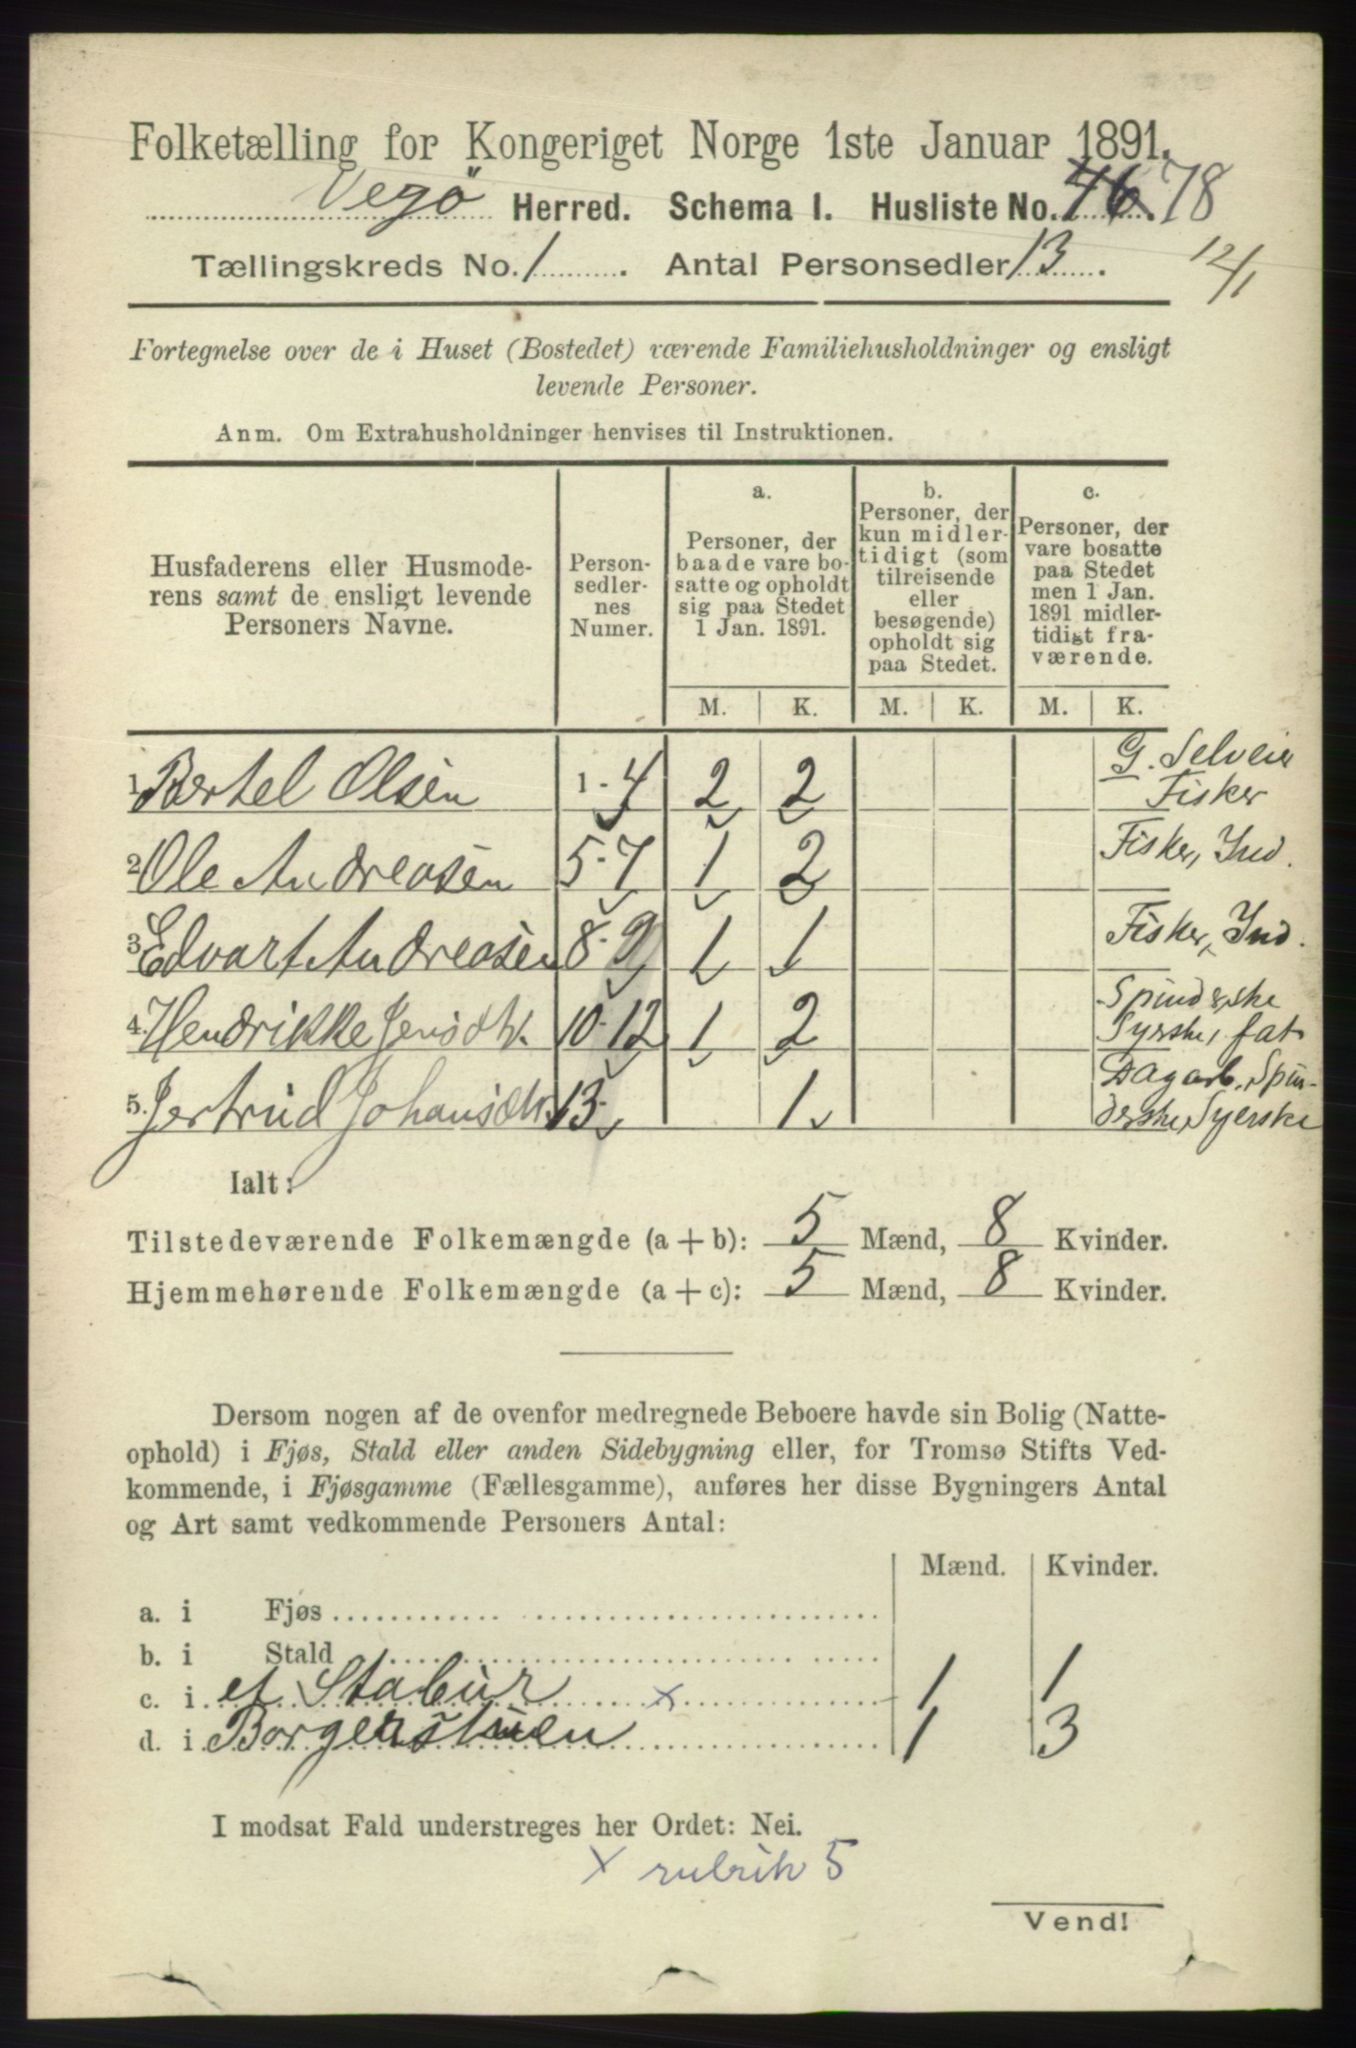 Folketælling for Kongeriget Norge 1ste Januar 1891.
Vegö Herred. Schema I. Husliste No. 46. 78
Tællingskreds No. 1. Antal Personsedler 13. 12/1
Fortegnelse over de i Huset (Bostedet) værende Familiehusholdninger og ensligt
levende Personer.
Anm. Om Extrahusholdninger henvises til Instruktionen.
Husfaderens eller Husmode-
rens samt de ensligt levende
Personers Navne.
Person-
sedler-
nes
Numer.
a.
Personer, der
baade vare bo-
satte og opholdt
sig paa Stedet
1 Jan. 1891.
b.
Personer, der
kun midler-
tidigt (som
tilreisende
eller
besøgende)
opholdt sig
paa Stedet.
c.
Personer, der
vare bosatte
paa Stedet
men 1 Jan.
1891 midler-
tidigt fra-
værende.
M. K. M. K. M. K.
1. Bertel Olsen 1-4 2 2 G. Selveier
Fisker
2. Ole Andreasen 5-7 1 2 Fisker, Ind.
3. Edvart Andreasen 8-9 1 1 Fisker, Ind.
4. Hendrikke Jensdtr. 10-12 1 2 Spinderske
Syerske, fat
5. Jertrud Johansdtr. 13 1 Dagarb. Spin-
derske, Syerske
Ialt:
Tilstedeværende Folkemængde (a + b): 5 Mænd, 8 Kvinder.
Hjemmehørende Folkemængde (a + c): 5 Mænd, 8 Kvinder.
Dersom nogen af de ovenfor medregnede Beboere havde sin Bolig (Natte-
ophold) i Fjøs, Stald eller anden Sidebygning eller, for Tromsø Stifts Ved-
kommende, i Fjøsgamme (Fællesgamme), anføres her disse Bygningers Antal
og Art samt vedkommende Personers Antal:
Mænd. Kvinder.
a. i Fjøs
b. i Stald
c. i et Stabur x 1 1
d. i Borgerstuen 1 3
I modsat Fald understreges her Ordet: Nei.
x rubrik 5
Vend!